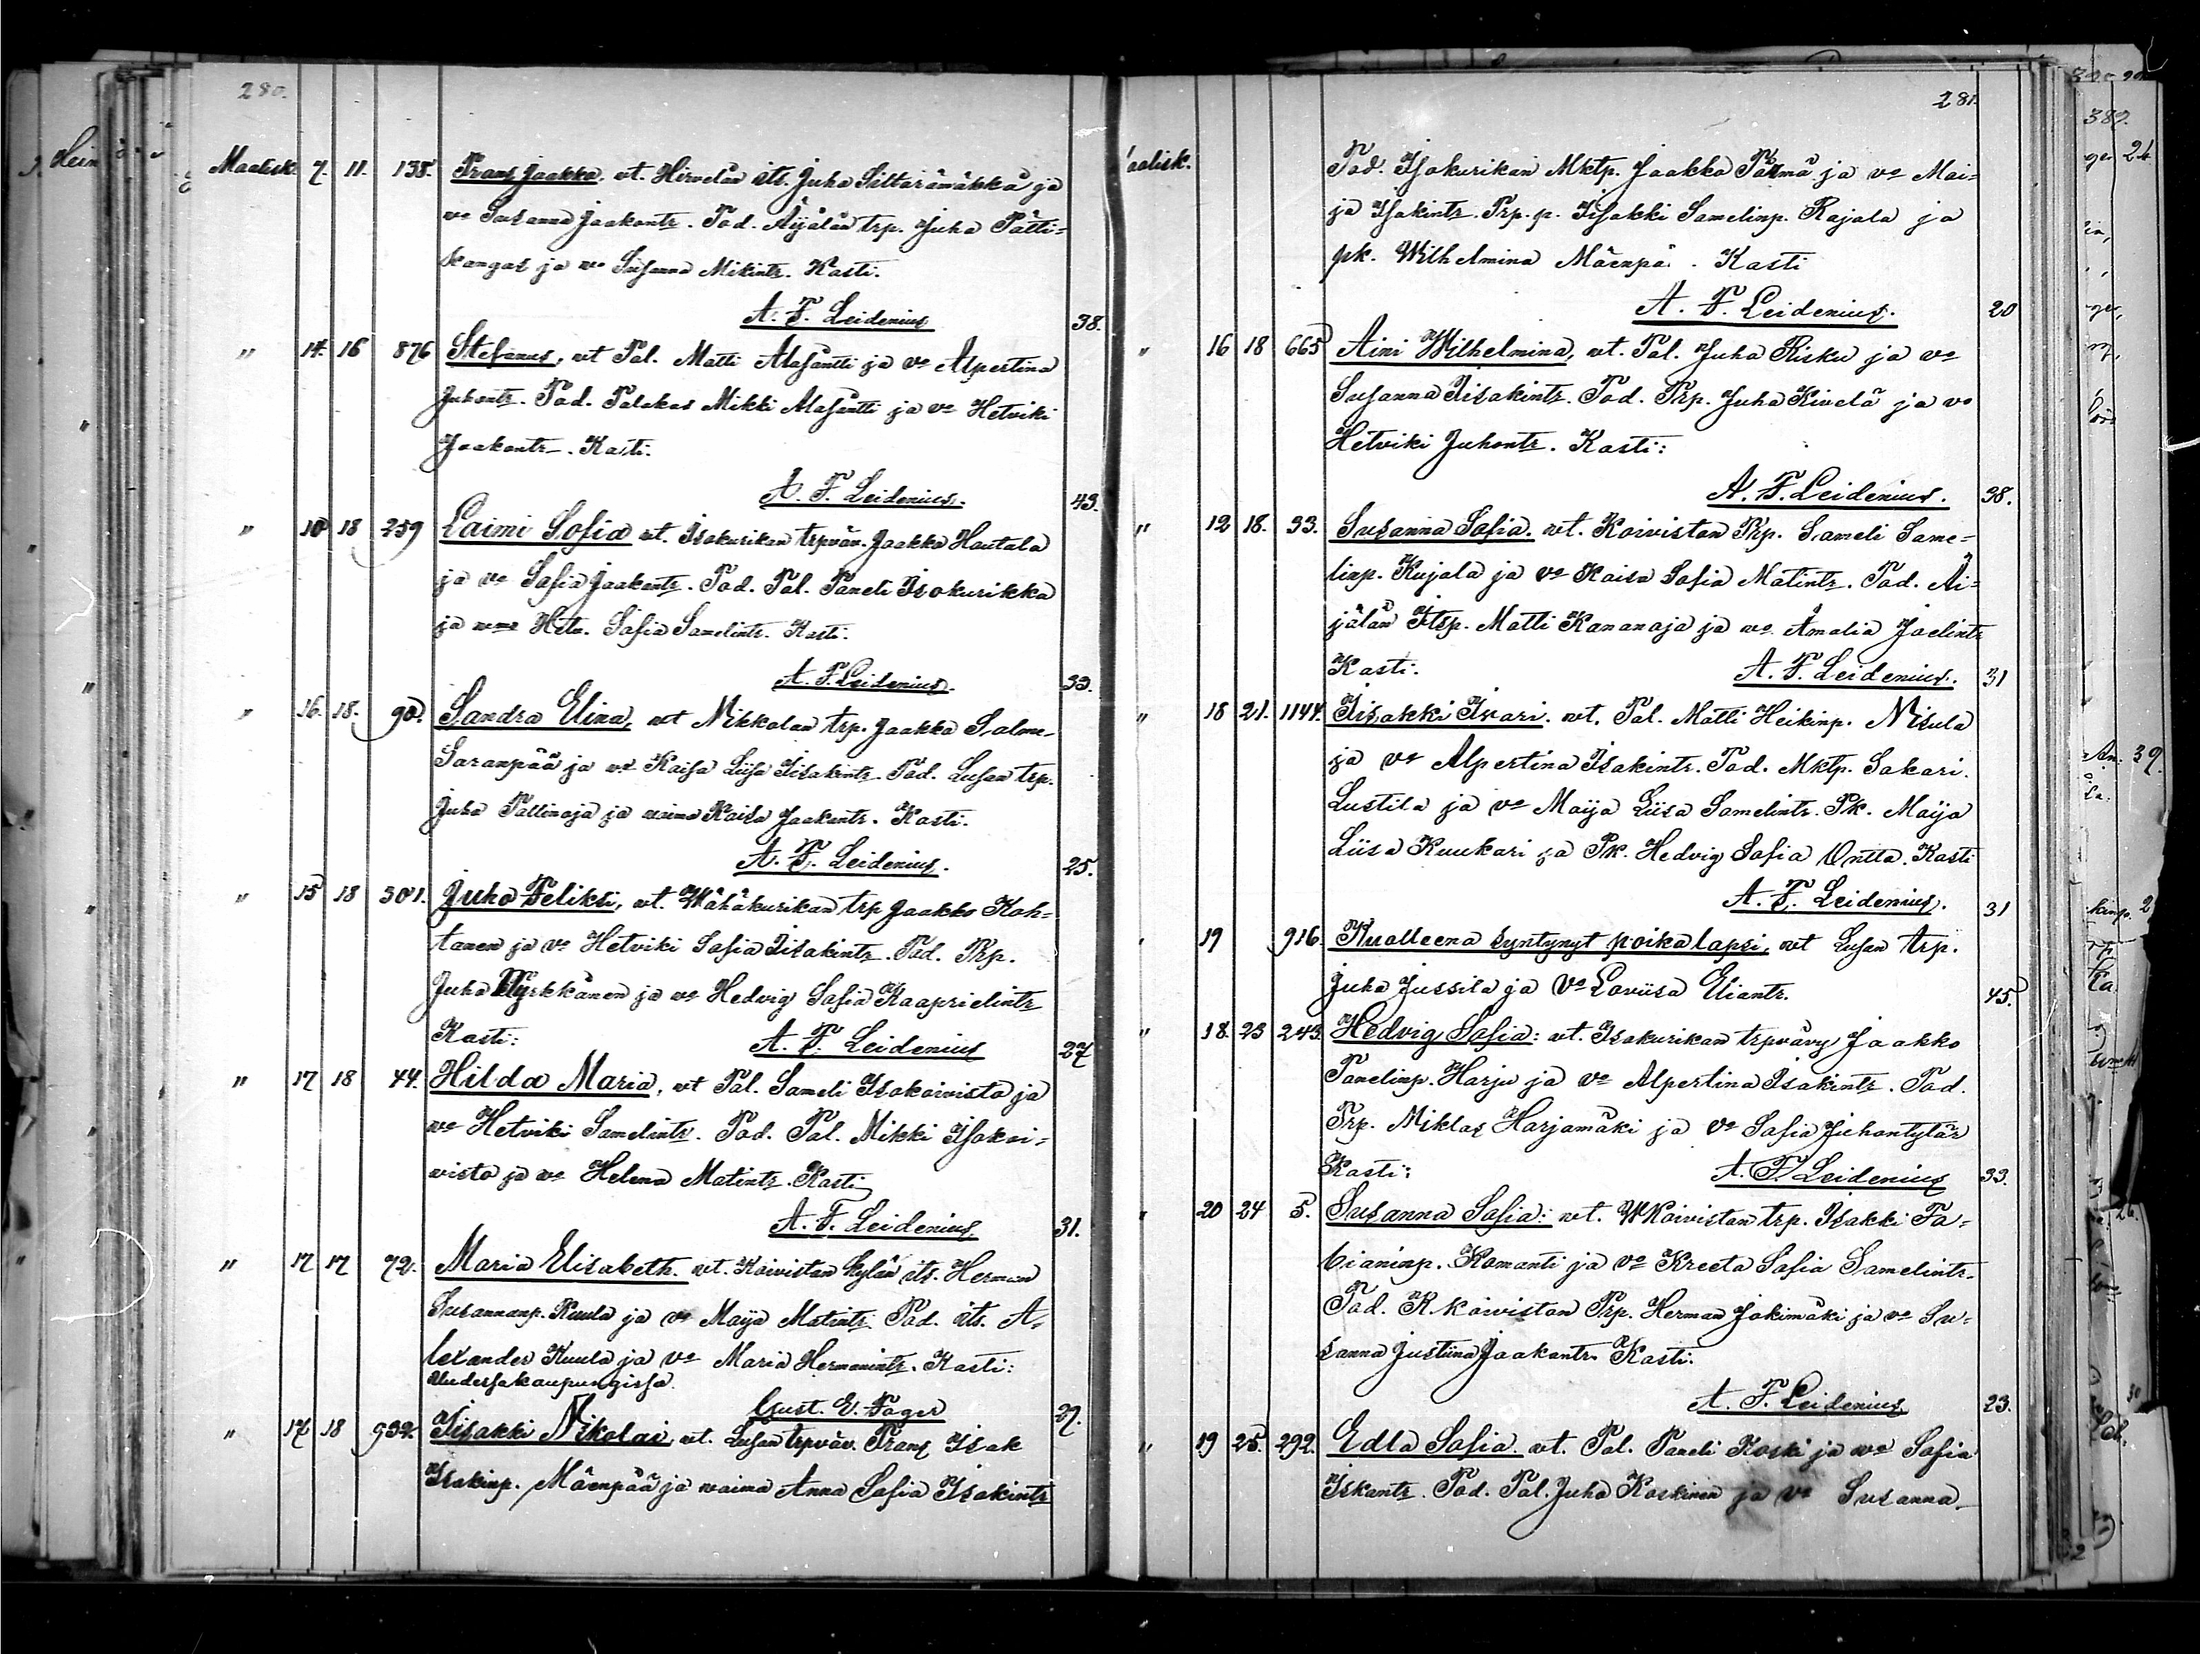 280.
Maalisk. 7. 11. 138. Frans Jaakko, vt. Hirvelän its. Juha Siltarämäkkä ja
vo Susanna Jaakontr. Tod. Äijälän trp. Juha Pälli-
kangas ja vo Susanna Mikintr. Kasti.
A. F. Leidenius 38.
" 14. 16 876 Stefanus, vt Tal. Matti Alasäntti ja vo Alpertina
Juhontr. Tod. Talokas Mikki Alasäntti ja vo Hetviki
Jaakontr. Kasti.
A. F. Leidenius. 43.
" 10 18 259 Laimi Sofia vt. Isokurikan trpväv. Jaakko Hautala
ja vo Sofia Jaakontr. Tod. Tal. Taneli Isokurikka
ja vmo Hetv. Sofia Samelintr. Kasti.
A. F. Leidenius. 33.
" 16. 18. 90. Sandra Elina, vt Mikkolan trp. Jaakko Salme-
Saranpää ja vo Kaisa Liisa Iisakintr. Tod. Lusan trp.
Juha Tallinoja ja vaimo Kaisa Jaakontr. Kasti.
A. F. Leidenius. 25.
" 15 18 301. Juho Feliksi, vt. Wähäkurikan trp Jaakko Koh-
tanen ja vo Hetviki Sofia Iisakintr. Tod. Trp.
Juha Tyrkkänen ja vo Hedvig Sofia Kaaprielintr
Kasti: A. F. Leidenius 27
" 17 18 44. Hilda Maria, vt Tal. Sameli Isokoivisto ja
vo Hetviki Samelintr. Tod. Tal. Mikki Isokoi-
visto ja vo Helena Matintr. Kasti
A. F. Leidenius. 31.
" 17 17 72. Maria Elisabeth. vt. Koiviston kylän its. Herman
Susannanp. Kuula ja vo Maija Matintr. Tod. its. A-
lexander Kuula ja vo Maria Hermanintr. Kasti:
Uudessakaupungissa.
Gust. E. Fager 27.
" 17 18 932. Iisakki Nikolai, vt. Lusan trpväv. Frans Isak
Isakinp. Mäenpää ja vaimo Anna Sofia Isakintr
281.
aalisk. Tod. Isokurikan Mktp. Jaakko Tarma ja vo Mai-
ja Isakintr. Trp. p. Iisakki Samelinp. Rajala ja
pk. Wilhelmina Mäenpä. Kasti
A. F. Leidenius. 20
" 16 18 665 Aini Wilhelmina, vt. Tal. Juha Risku ja vo
Susanna Iisakintr. Tod. Trp. Juha Kivelä ja vo
Hetviki Juhontr. Kasti:
A. F. Leidenius. 38.
" 12 18. 33. Susanna Sofia. vt. Koiviston Trp. Sameli Same-
linp. Kujala ja vo Kaisa Sofia Matintr. Tod. Äi-
jälän Itsp. Matti Kananoja ja vo Amalia Joelintr
Kasti: A. F. Leidenius. 31
" 18 21. 1144. Iisakki Ivari. vt. Tal. Matti Heikinp. Nisula
ja vo Alpertina Isakintr. Tod. Mktp. Sakari.
Lustila ja vo Maija Liisa Samelintr. Pk. Maija
Liisa Kuukari ja Pk. Hedvig Sofia Ontto. Kasti
A. F. Leidenius. 31
" 19 916. Kuolleena syntynyt poikalapsi, vt Lusan trp.
Juha Jussila ja Vo Loviisa Eliantr. 45.
" 18. 23 243. Hedvig Sofia: vt. Isokurikan trpvävy Jaakko
Tanelinp. Harju ja vo Alpertina Isakintr. Tod.
Trp. Miklas Harjamäki ja Vo Sofia Juhontytär
Kasti: A. F. Leidenius 33.
" 20 24 5. Susanna Sofia: vt. WKoiviston trp. Isakki Fa-
bianinp. Komanti ja vo Kreeta Sofia Samelintr.
Tod. K. Koiviston Trp. Herman Jokimäki ja vo Su-
sanna Justiina Jaakontr. Kasti.
A. F. Leidenius 23.
" 19 25. 292. Edla Sofia. vt. Tal. Taneli Koski ja vo Sofia
Iskantr. Tod. Tal. Juha Koskinen ja vo Susanna